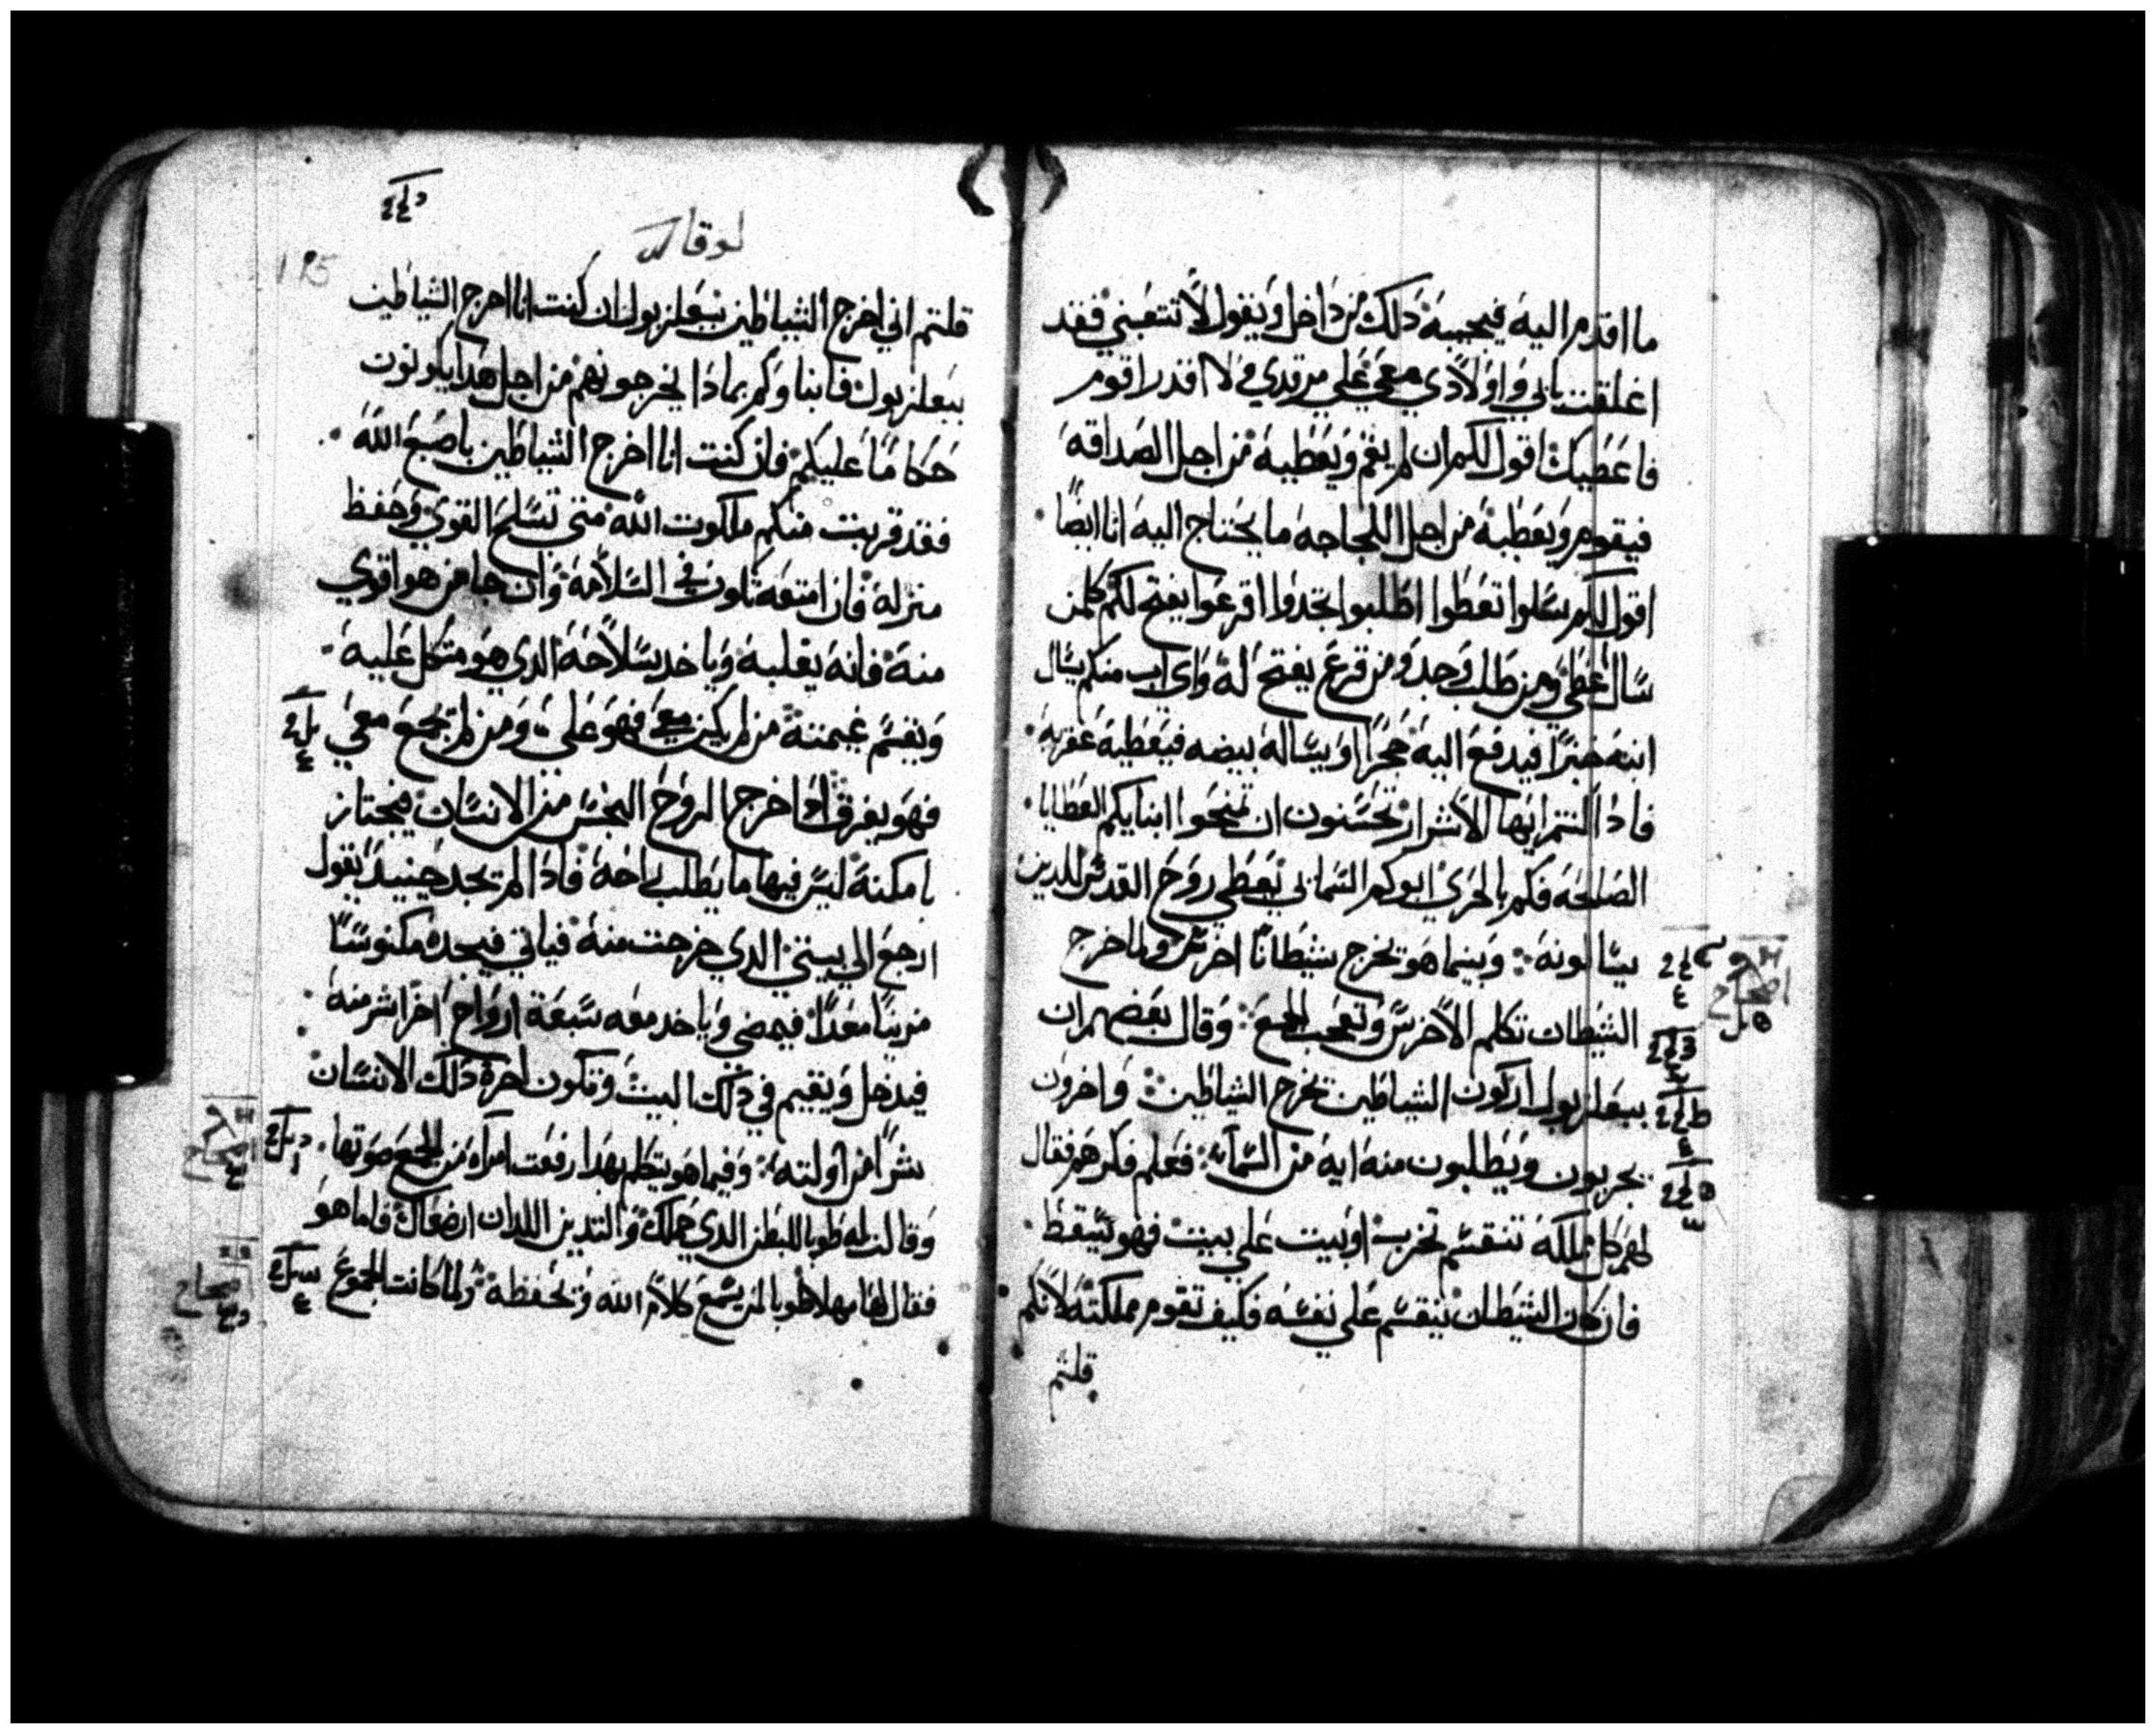 ما اقدم اليه فيجيبه دلك من داخل ويقول لا تتعبني فقد
اغلقت بابي واولادي معي علي مرقدي لا اقدر اقوم
فاعطيك اقول لكم ان لم يقم ويعطيه من اجل الصداقه
فيقوم ويعطيه من اجل اللجاجه ما يحتاج اليه انا ايضا
اقول لكم سلوا تعطوا اطلبوا تجدوا اقرعوا يفتح لكم كلمن
سال اعطي ومن طلب وجد ومن قرع يفتح له واي اب منكم يسال
ابنه خبزا فيدفع اليه حجرا او يساله بيضه فيعطيه عقربه
فادا انتم ايها الاشرار تحسنون ان تمنحوا ابنايكم العطايا
الصالحه فكم بالحري ابوكم السماني يعطي روح القدس للدين
يسالونه وبينما هو يخرج شيطانا اخرس ولما خرج
الشيطان تكلم الاخرس وتعجب الجمع وقال بعضهم ان
ببعلزبول اركون الشياطين يخرج الشياطين واخرون
يجربون ويطلبون منه ايه من السماء فعلم فكرهم فقال
لهم كل مملكه تنقسم تخرب او بيت علي بيت فهو يسقط
فان كان الشيطان ينقسم علي نفسه فكيف تقوم مملكته لانكم
قلتم
لوقا
195
قلتم اني اخرج الشياطين ببعلزبول ان كنت انا اخرج الشياطين
ببعلزبول فابناوكم بمادا يخرجونهم من اجل هدا يكونون
حكاما عليكم فان كنت انا اخرج الشياطين باصبع الله
فقد قربت منكم ملكوت الله متي تسلح القوي وحفظ
منزله فان امتعه تكون في السلامه وان جا من هو اقوي
منه فانه يغلبه وياخد سلاحه الدي هو متكل عليه
ويقسم غنيمته من لم يكن معي فهو علي ومن لم يجمع معي
فهو يفرق ادا خرج الروح النجس من الانسان فيجتاز
بامكنة ليس فيها ما يطلب راحة فادا لم تجد حينيد يقول
ارجع الي بيتي الدي خرجت منه فياتي فيجده مكنوسا
مزينا معدا فيمضي وياخد معه سبعة ارواح اخر اشر منه
فيدخل ويقيم في دلك البيت وتكون اخرة دلك الانسان
شرا من اولته وفيما هو يتكلم بهدا رفعت امراه من الجمع صوتها
وقالت له طوبا للبطن الدي حملك والتديين اللدان ارضعاك فاما هو
فقال لها مهلا طوبا لمن يسمع كلام الله ويحفظه ولما كانت الجموع